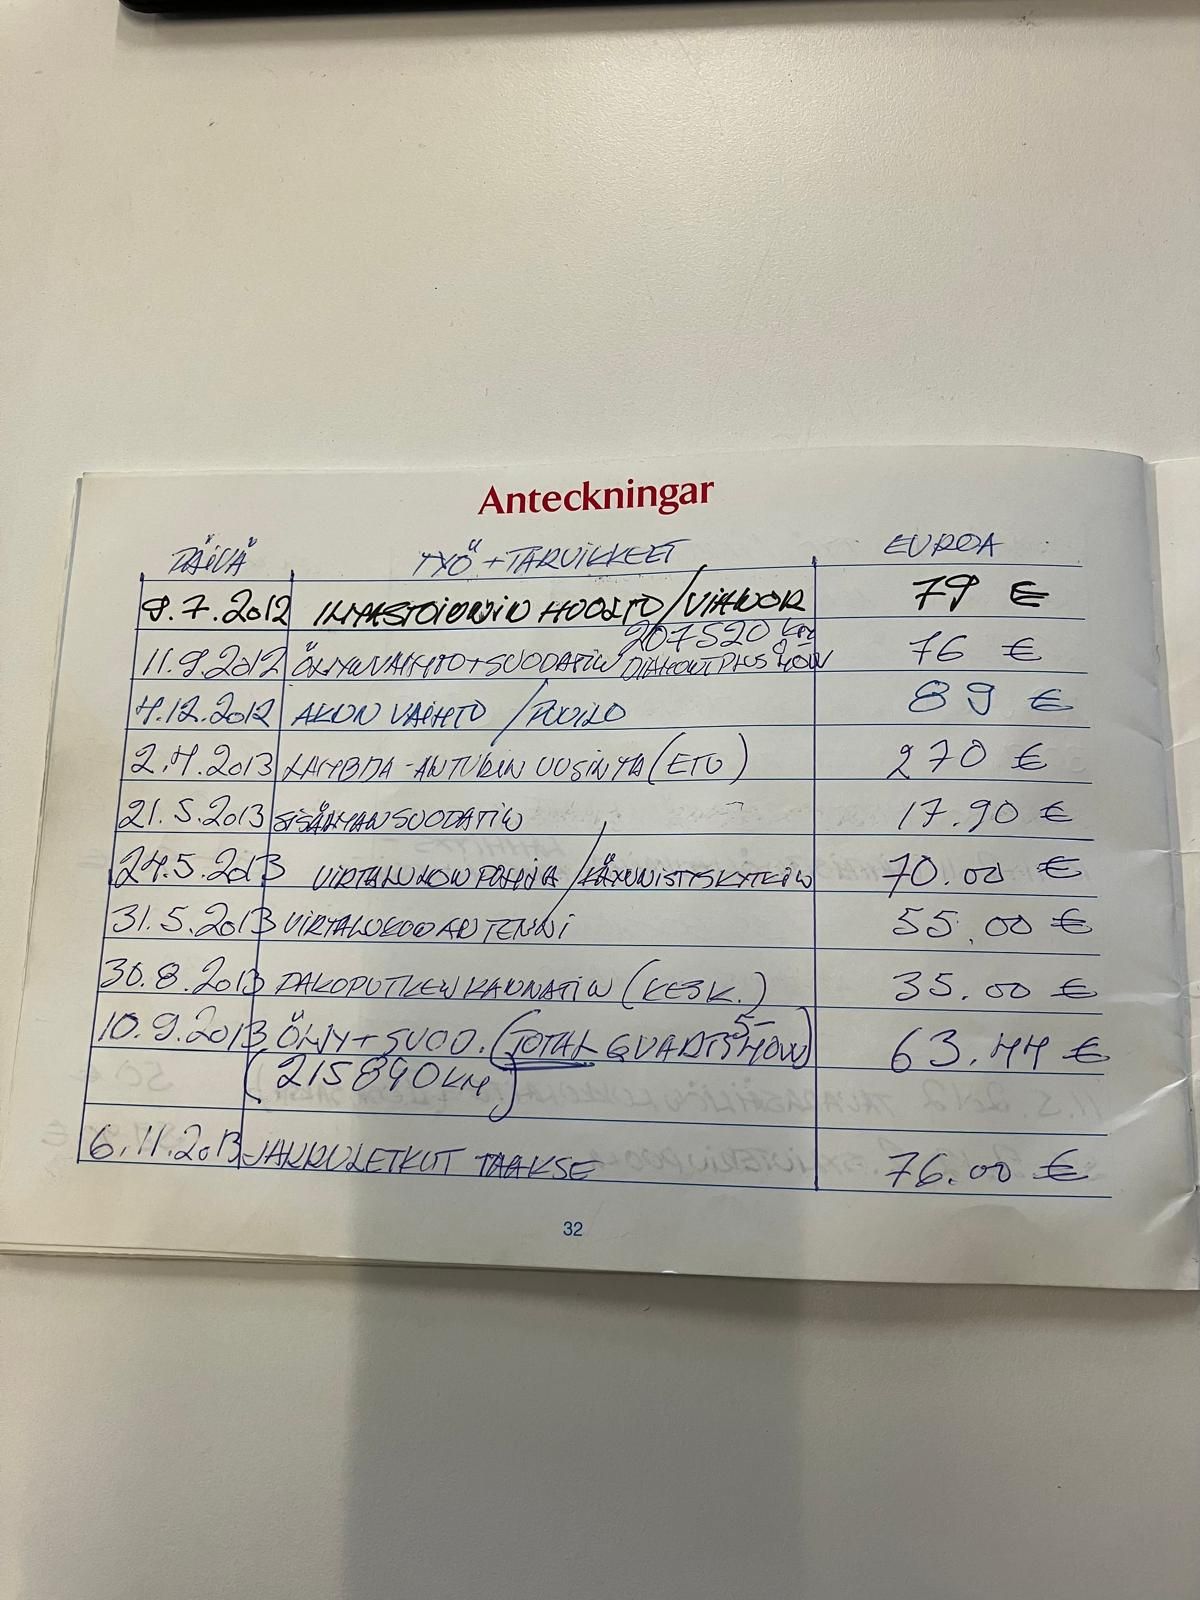 Anteckningar
PÄIVÄ TYÖ + TARVIKKEET EUROA
9.7.2012 ILMASTOINNIN HUOLTO / VIANOR 79 €
207520 km
11.9.2012 ÖLJYNVAIHTO + SUODATIN PLUS 40W 76 €
4.12.2012 AKUN VAIHTO / PUUILO 89 €
2.4.2013 LAMBDA-ANTURIN UUSINTA (ETU) 270 €
21.5.2013 SISÄILMANSUODATIN 17.90 €
24.5.2013 VIRTALUKON POHJA / KÄYNNISTYSKYTKIN 70.00 €
31.5.2013 VIRTALUKON ANTENNI 55.00 €
30.8.2013 PAKOPUTKEN KANNATIN (KESK.) 35.00 €
10.9.2013 ÖLJY + SUOD. (TOTAL QUARTZ 5-40W) 63.44 €
(215890 KM)
6.11.2013 JARRULETKUT TAAKSE 76.00 €
32